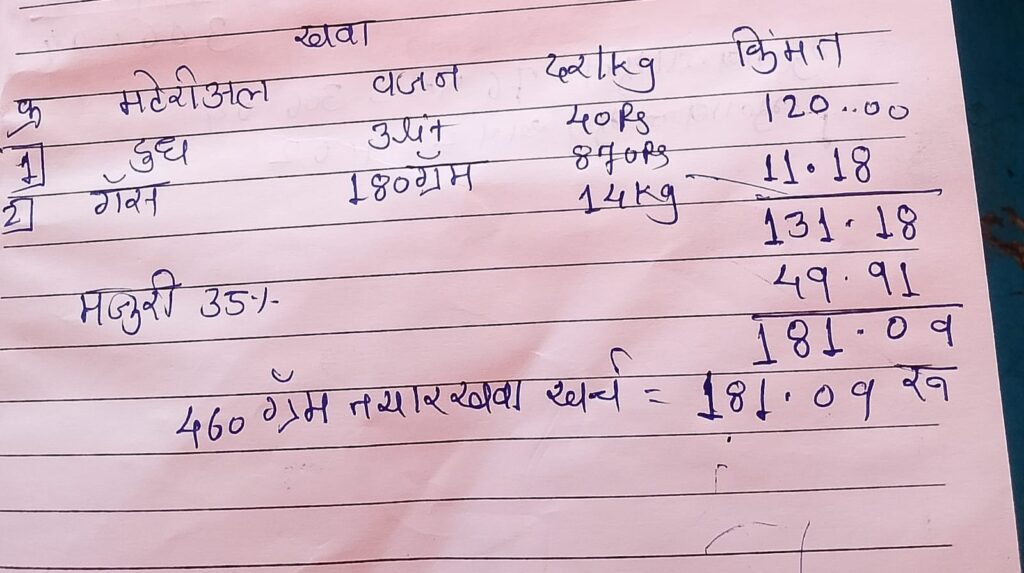 खवा
क्र मटेरीअल वजन दर/kg किंमत
1] दुध 3लि 40Rs 120..00
2] गॅस 180ग्रॅम 870Rs 11.18
14kg
131.18
मजुरी 35% 49.91
181.09
460 ग्रॅम तयार खवा खर्च = 181.09 रु